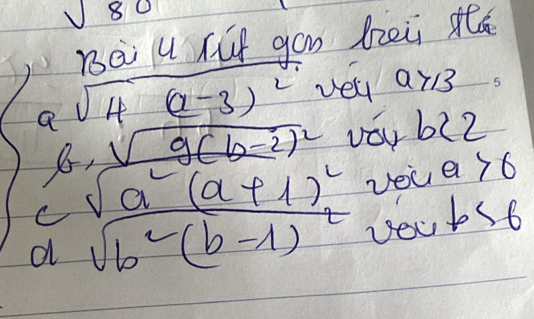 √80
Bài 4 rút gọn biểu thức
a √4 (a-3)² với a≥3
b, √9(b-2)² với b<2
c √a² (a+1)² với a>6
d √b²(b-1)² với b<6